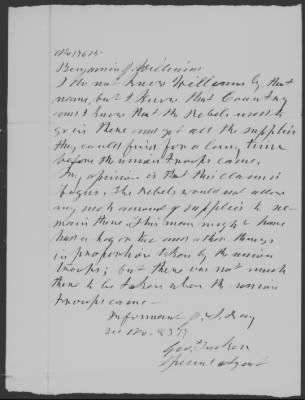 No 13615
Benjamin J. Williams
I do not know Williams by that
name, but I know that Country
and I know that the Rebels used to
go in there and get all the supplies
they could find for a long time
before the union troops came.
My opinion is that this claim is
bogus. The Rebels would not allow
any such amount of supplies to re-
main there. This man might have
had a hog or two and other things
in proportion taken by the union
troops; but there was not much
there to be taken when the union
troops came—
Informant J. S. Day
see No. 8377
Geo. Tucker
Special Agent